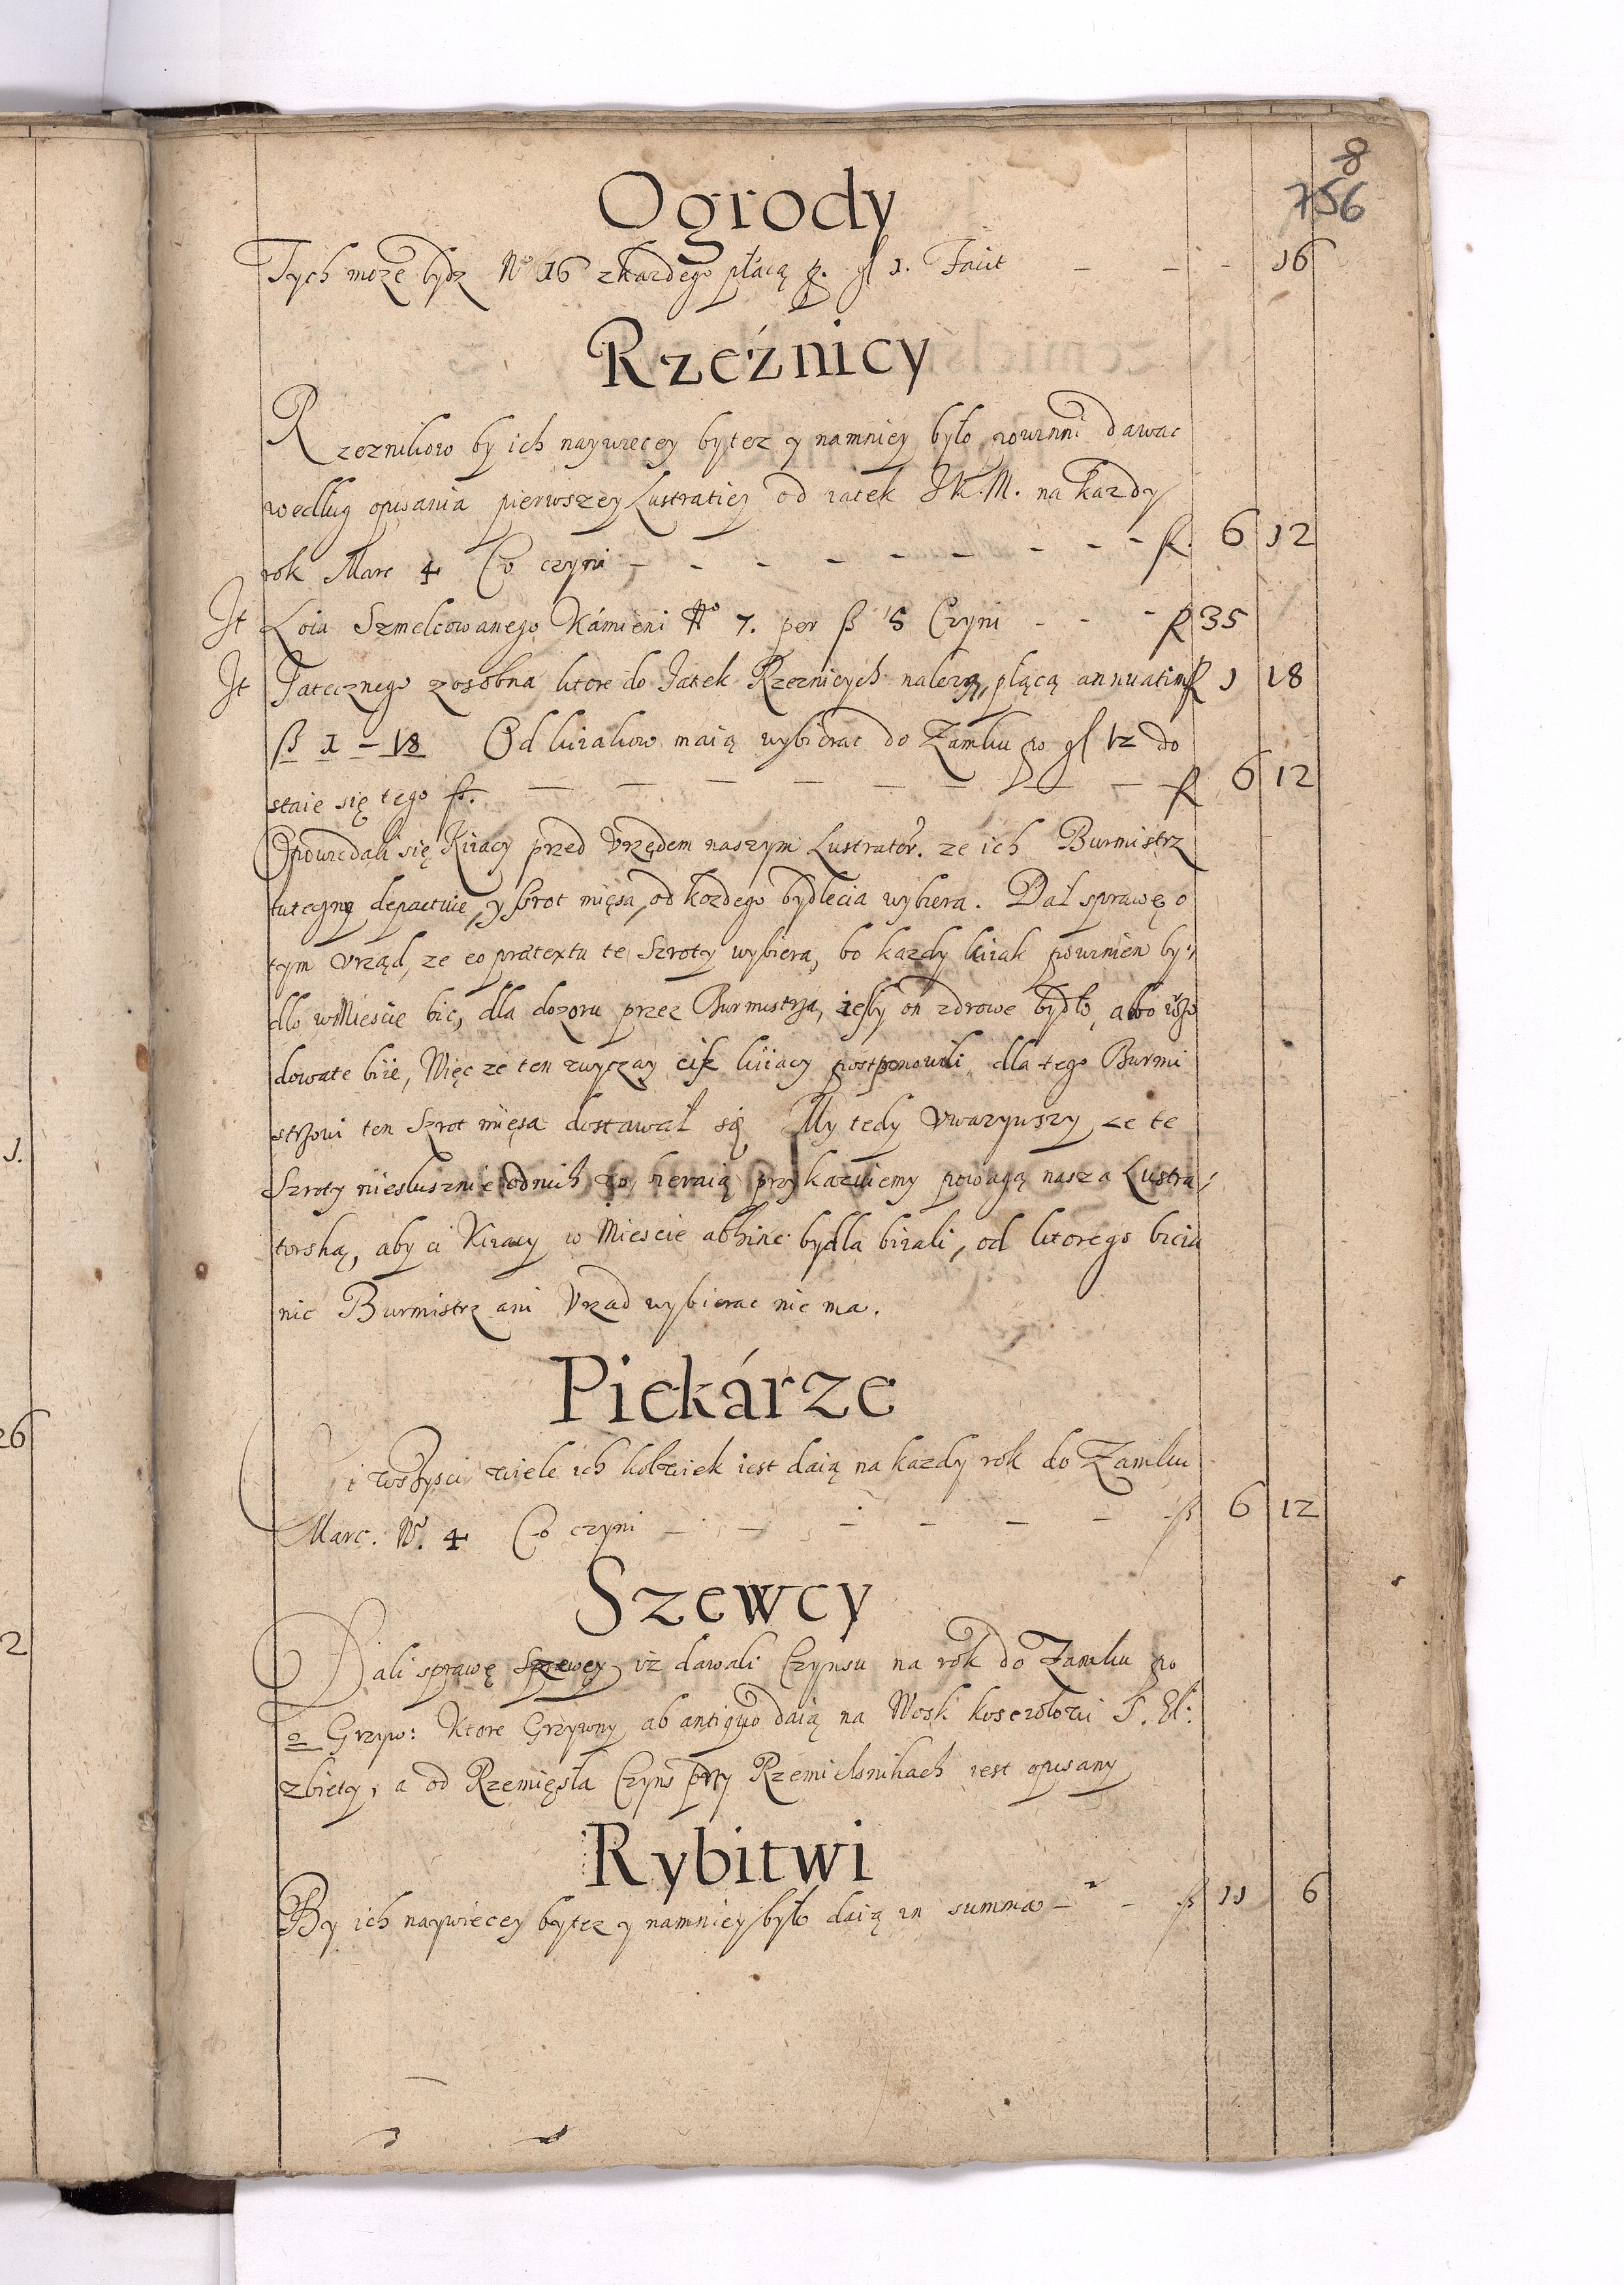 8
756
Ogrody
Tych może bydz No 16 zkazdego płácą p. gl 1. Faiit - - - 16
Rzeźnicy
Rzeznikow by ich naywiecey bytez y namniey było powinni dawac
według opisania pierwszey Lustratiey od iatek J K. M. na kazdy
rok Marc 4 Co czyni - - - - - - - - - fl. 6 12
It Loiu Szmelcowanego Kámieni No 7. per fl 5 Czyni - - - fl 35
It Jatecznego zosobna ktore do Jatek Rzeznicych nalezą, płącą annuatim fl 1 18
fl 1 - 18 Od kuiakow maią wybierac do Zamku po gl 12 do
staie się tego fl. - - - - - - - fl 6 12
Opowiedali się Kiiacy przed Vrzędem naszym Lustrator. ze ich Burmistrz
tuteczny depactuie, y szrot mięsa, od kozdego bydlecia wybiera. Dał sprawę o
tym Vrząd, ze eo prætextu te Szroty wybiera, bo kazdy kiiak powinien by
dło wMieście bic, dla dozoru przez Burmistrza, iesby on zdrowe bydło, abo
dowate biie, Więc ze ten zwyczay ciż kiiacy postponowali dla tego Burmi
strzowi ten Szrot mięsa dostawał się My tedy Vwazywszy ze te
Szroty niesłusznie odnich wybieraią przykazuiemy powagą nasza Lustra
torską, aby ci Kiiacy w Miescie abhinc bydla biiali, od ktorego bicia
nic Burmistrz ani Vrzad wybierac nie ma.
Piekárze
Ci wszyscy wiele ich kolwiek iest daią na kazdy rok do Zamku
Marc. No. 4 Co czyni - - - - - - fl 6 12
Szewcy
Dali sprawę Szewcy iz dawali Czynsu na rok do Zamku po
2 Grzyw: Ktore Grzywny ab antiquo daią na Wosk kosczołowi S. El:
zbiety, a od Rzemięsła Czyns przy Rzemieslnikach iest opisany
Rybitwi
By ich naywiecey bytez y namniey było daią in summa - - fl 11 6